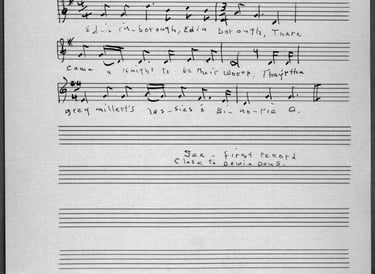 Ed-in-borough, Edin borough, Thare
Came a Knight to be their wooer, Thryrtha
grey millett's las-sies è Bi-no-rie O.
See - first record
Close to Dewie Dens.